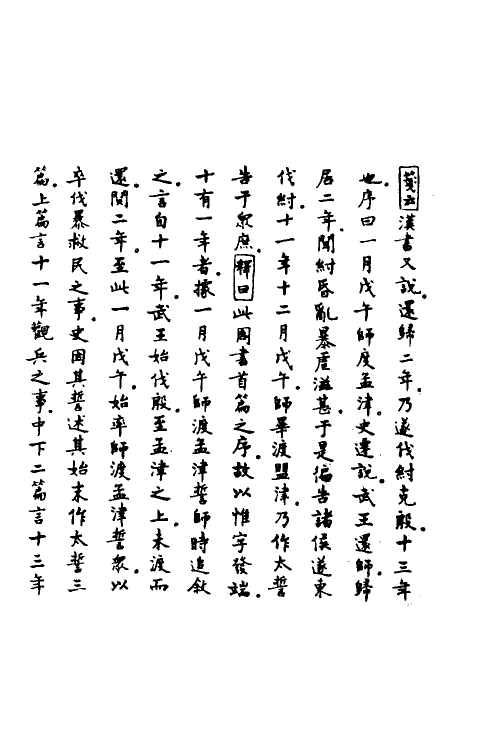 箋云漢書又說還歸二年乃遂伐紂克殷十三年
也序曰一月戊午師度孟津史遷說武王還師歸
居二年聞紂昏亂暴虐滋甚于是徧告諸侯遂東
伐紂十一年十二月戊午師畢渡盟津乃作太誓
告于眾庶釋曰此周書首篇之序故以惟字發端
十有一年者據一月戊午師渡孟津誓師時追敘
之言自十一年武王始伐殷至孟津之上未渡而
還閱二年至此一月戊午始率師渡孟津誓眾以
卒伐暴救民之事史因其誓述其始末作太誓三
篇上篇言十一年觀兵之事中下二篇言十三年